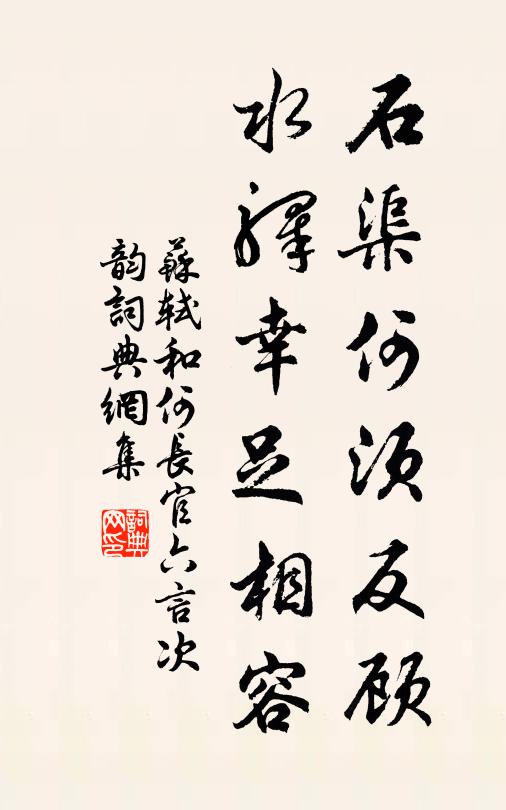 石渠何须反顾
水驿幸足相容
蘇軾和何長官六言次
韵詞典網集
詞典
网印